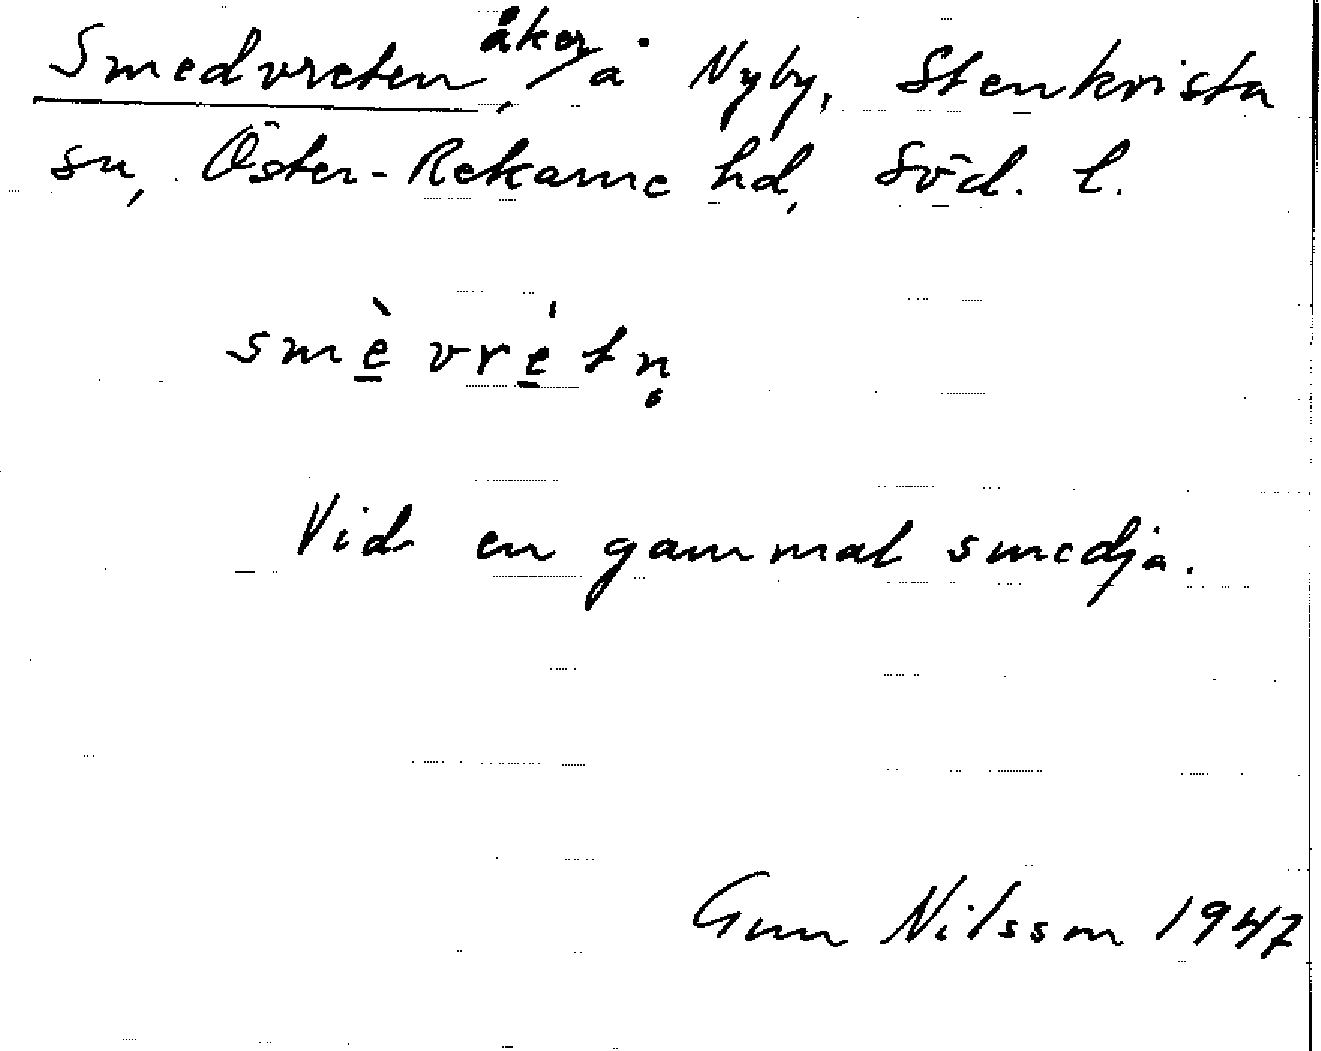 Smedvreten, åker å Nyby, Stenkvista
sn, Öster-Rekarne hd, Söd. l.
smè̲vré̲tn̥
Vid en gammal smedja.
Gun Nilsson 1947